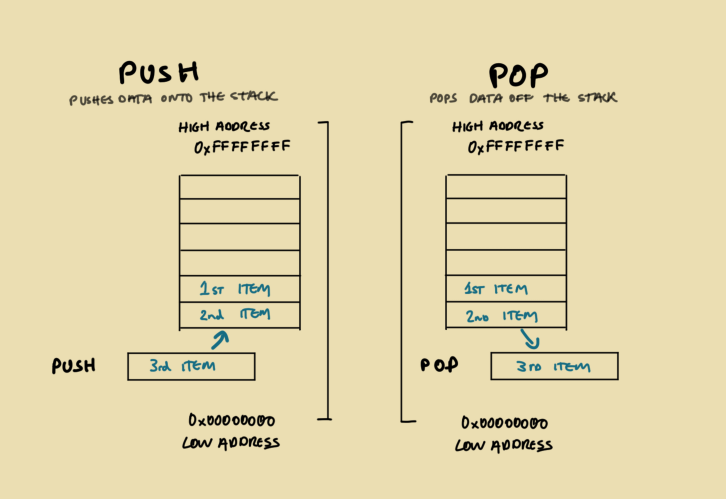 PUSH
PUSHES DATA ONTO THE STACK
HIGH ADDRESS
0xFFFFFFFF
1ST ITEM
2nd ITEM
PUSH
3rd ITEM
0x00000000
LOW ADDRESS
POP
POPS DATA OFF THE STACK
HIGH ADDRESS
0xFFFFFFFF
1ST ITEM
2ND ITEM
POP
3RD ITEM
0x00000000
LOW ADDRESS